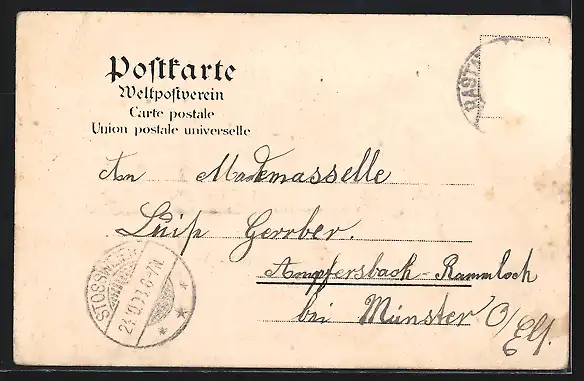 Postkarte
Weltpostverein
Carte postale
Union postale universelle
An Mademasselle
Luiss Gerrber.
Ampfersbach-Rammloch
bei Münster O/Els.
RAST
STOSSW
24.10.
6-7N